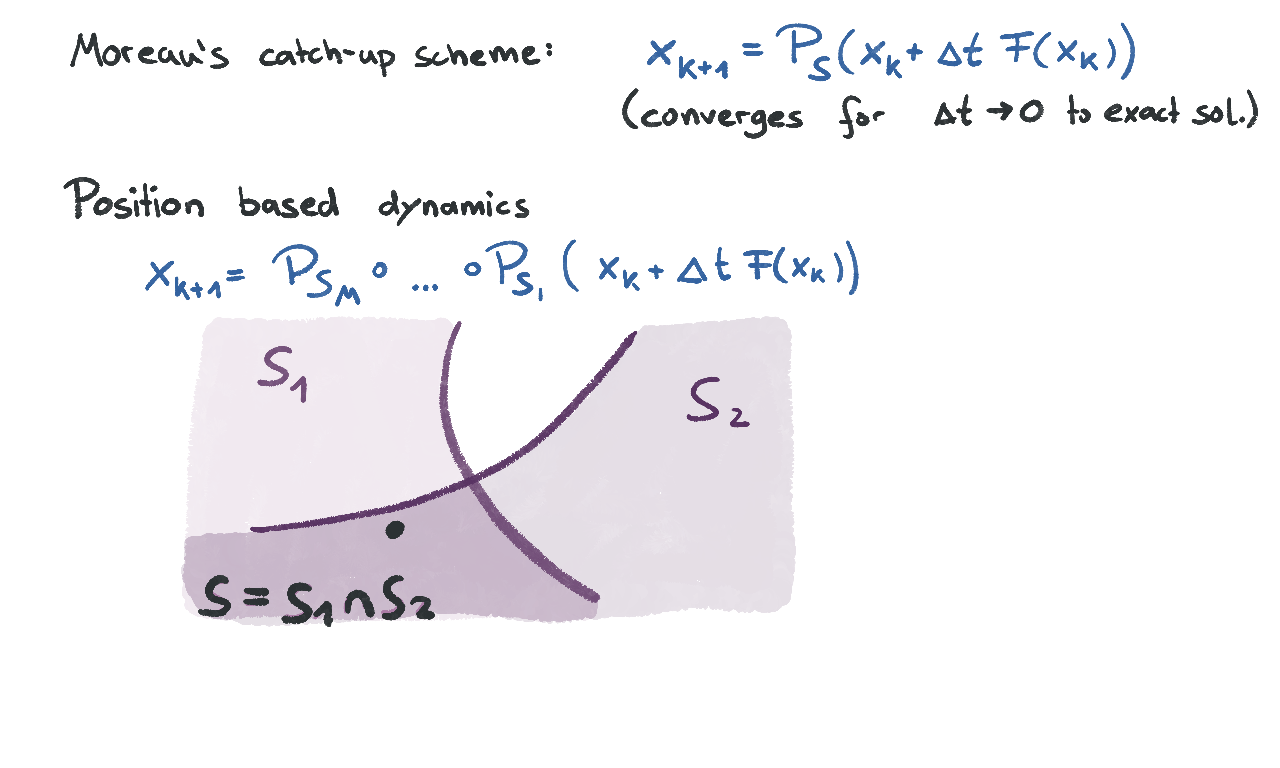 Moreau's catch-up scheme: x_{k+1} = P_S(x_k + Δt F(x_k))
(converges for Δt → 0 to exact sol.)
Position based dynamics
x_{k+1} = P_{S_M} ∘ ... ∘ P_{S_1} (x_k + Δt F(x_k))
S_1
S_2
S = S_1 ∩ S_2